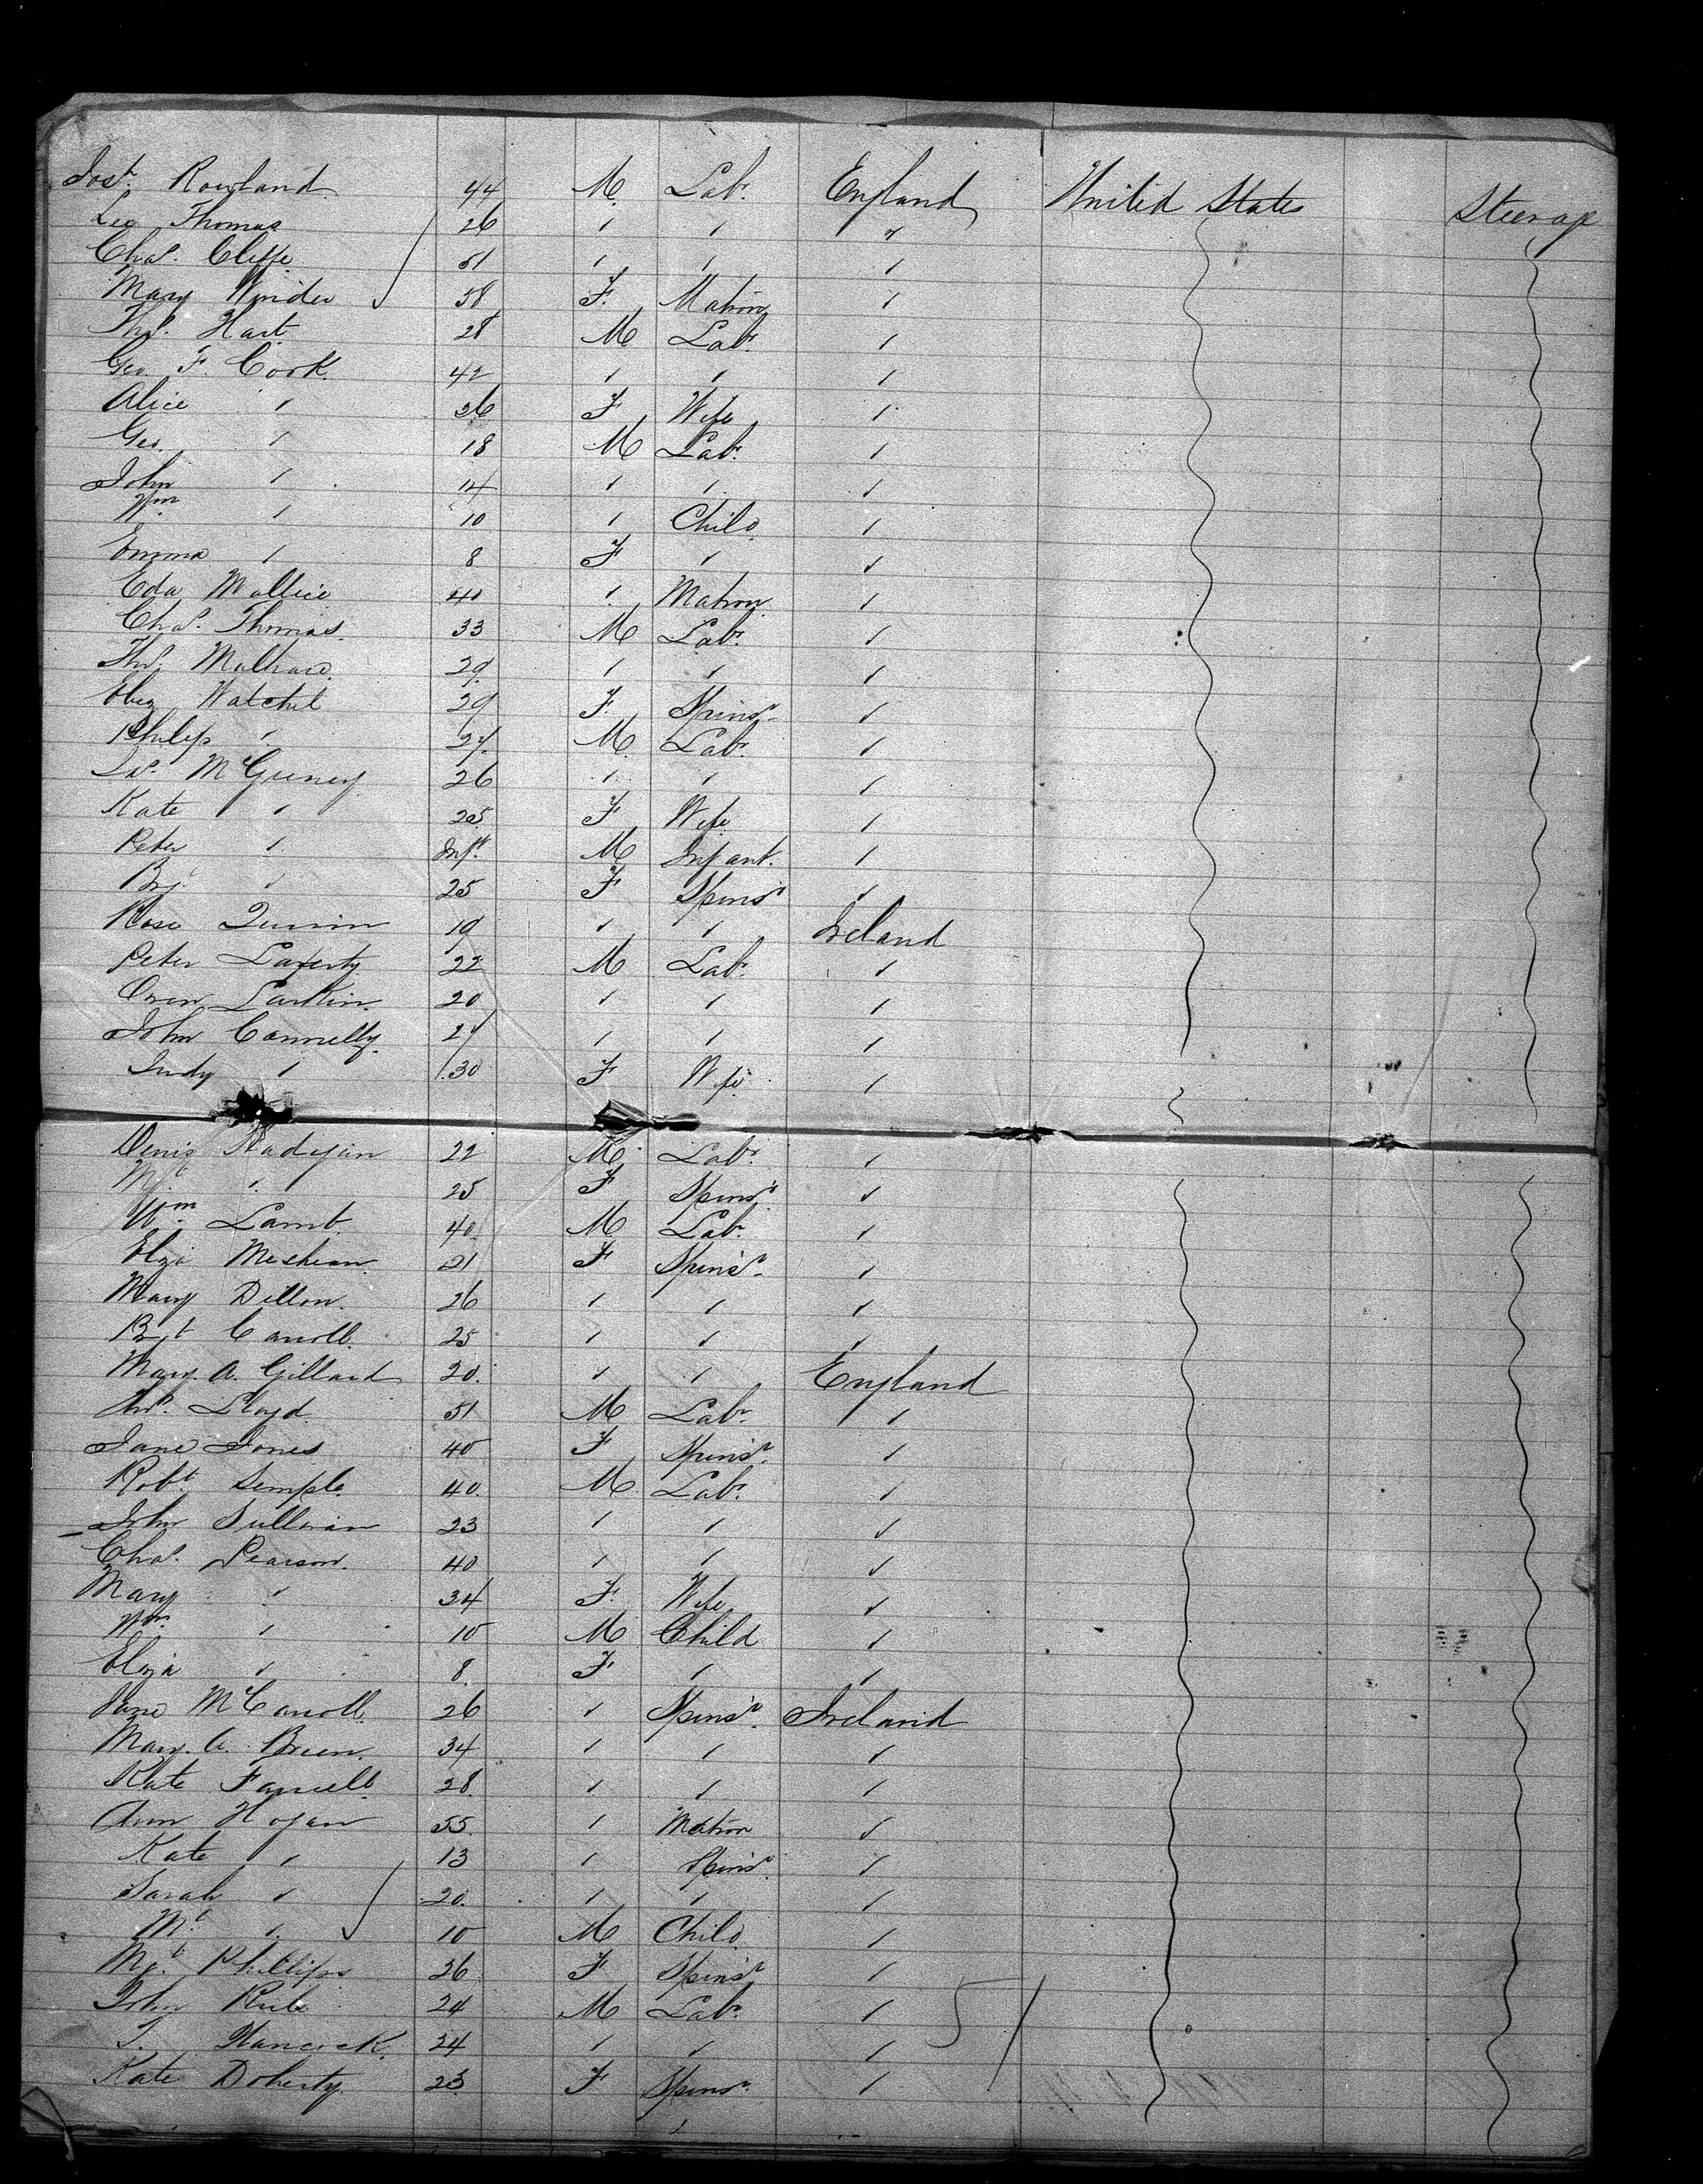 Jos.h Rowland 44 M. Lab.r England United States Steerage
Leo Thomas 26 " " "
Cha.s Cliffe 51 " " "
Mary Winder 58 F. Matron "
Tho.s Hart 28 M Lab.r "
Geo. F Cook. 42 " " "
Alice " 26 F Wife "
Geo. " 18 M Lab.r "
John " 14 " " "
W.m " 10 " Child "
Emma " 8 F " "
Eda Wallice 40 " Matron "
Cha.s Thomas. 33 M Lab.r "
Tho.s 29 " " "
Watchel 29 F. Spins.r "
Philip " 27 M Lab.r "
McGreney 26 " " "
Kate " 25 F Wife "
Peter " Inf.t M Infant. "
Bg.t " 25 F Spins.r "
Rose Quinn 19 " " Ireland
Peter Laferty 22 M Lab.r "
Owen Larkin. 20 " " "
John Connelly. 27 " " "
Judy " 30 F Wife "
Denis Hadigan 22 M. Lab.r "
M.t " 25 F Spins.r "
W.m Lamb 40 M Lab.r "
Eliza Meehean 21 F Spins.r "
Mary Dillon. 26 " " "
Bg.t Carroll 25 " " "
Mary. A. Gillard 20. " " England
Tho.s Lloyd 51 M Lab.r "
Jane Jones 40 F Spins.r "
Rob.t Semple 40. M Lab.r "
John Sullivan 23 " " "
Cha.s Pearson. 40 " " "
Mary " 34 F. Wife "
W.m " 10 M Child "
Eliza " 8 F " "
Jane McCarroll 26 " Spins.r Ireland
Mary. A. Breen. 34 " " "
Kate Farrell 28 " " "
Ann Hogan 55. " Matron "
Kate " 13 " Spins.r "
Sarah " 20. " " "
M.t " 10 M Child "
Mg.t Phillips 26 F Spins.r "
John 24 M Lab.r " 51
T. Hancock. 24 " " "
Kate Doherty 23 F Spins.r "
"